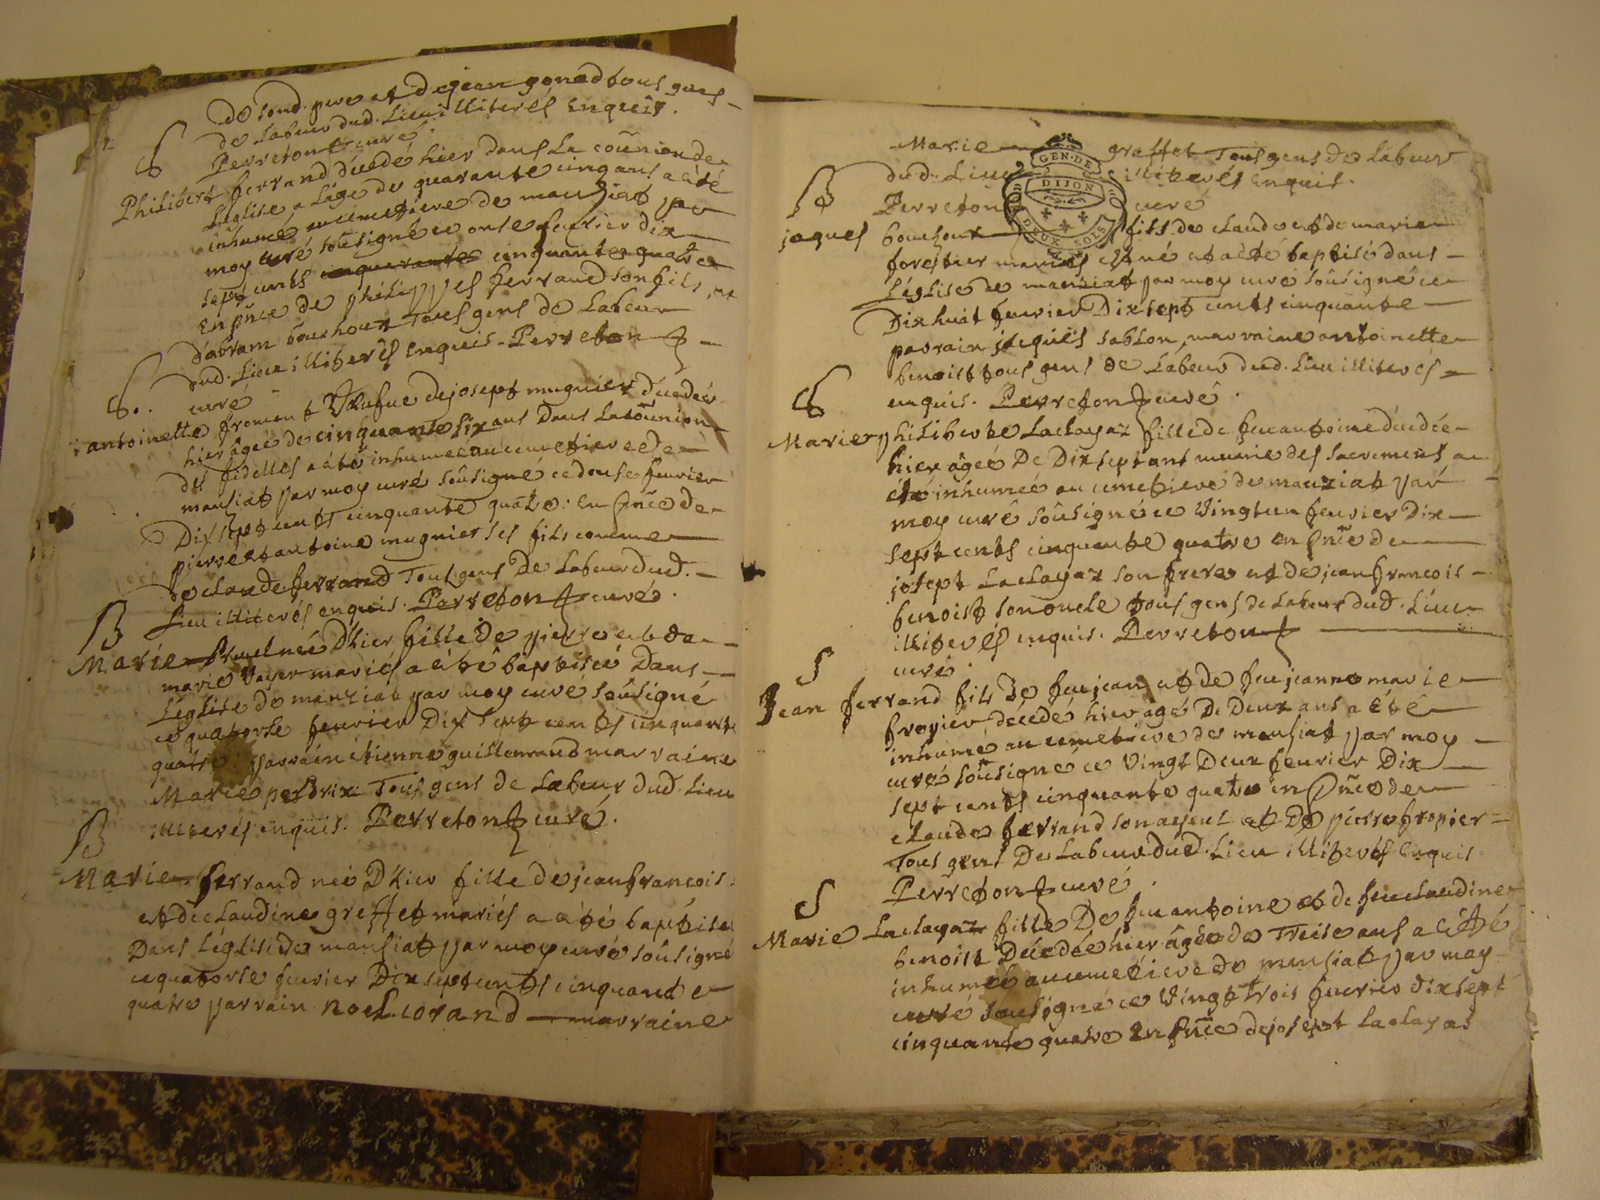 de soud. pere et de jean gonod tous gens
de Labeur dud. Lieu illiterés Enquis.
S Perreton curé.
Philibert ferrand décédé hier dans La coũnion de
Léglise a Lâge de quarante cinq ans a été
inhumé au cimetiere de manziat par
moy curé soũsigné ce onse feuvrier dix
sept cents cinquante quatre
En p̃nce de philippes ferrand son fils, et
d'abram bouchoux Tous gens de Labeur
dud. Lieu illiterés Enquis. Perreton
S. curé
antoinette froment Veufue de josept mugnier décedée
hier âgeé de cinquante six ans Dans La coũnion
des fidelles a été inhumeé au cimetiere de
mansiat par moy curé soũsigné ce douse feuvrier
Dix sept cents cinquante quatre: En p̃nce de
pierre et antoine mugnier ses fils comme
de claude ferrand Tous gens De Labeur dud.
Lieu illiterés enquis. Perreton curé.
B
Marie Pruel neé D'hier fille De pierre et de
marie Voyer mariés a été baptiseé Dans
Léglise de manziat par moy curé soũsigné
ce quatorse feuvrier Dix sept cents cinquante
quatre: parrain etienne guillemaud marraine
Marie perdrix Tous gens de Labeur dud. Lieu
illiterés enquis. Perreton curé.
B
Marie ferrand neé D'hier fille de jean francois
et de claudine greffet mariés a été baptisé
Dans Léglise de mansiat par moy curé soũsigné
ce quatorse feuvrier Dix sept cents cinquante
quatre parrain noel morand marraine
Marie graffet Tous gens de Labeur
dud. Lieu illiterés enquis.
B Perreton curé
jaques bouchoux fils de claude et de marie
forestier mariés est né et a été baptisé dans
Léglise de manziat par moy curé soũsigné ce
Dix huit feuvrier Dix sept cents cinquante
parrain jaques sablon, marraine antoinette
benoist tous gens de Labeur dud. Lieu illiterés
S enquis. Perreton curé.
Marie philiberte Laclayaz fille de feu antoine décedée
hier âgeé De Dix sept ans munie des sacremens a
été inhumeé au cimetiere de manziat par
moy curé soũsigné ce Vingt un feuvrier Dix
sept cents cinquante quatre en p̃nce de
josept Laclayaz son frere et de jean francois
benoist son oncle tous gens de Labeur dud. Lieu
illiterés enquis. Perreton
S curé
Jean ferrand fils De feu jean et de feu jeanne marie
froyier decedé hier âgé De Deux ans a été
inhumé au cimetiere de mansiat par moy
curé soũsigné ce Vingt Deux feuvrier Dix
sept cents cinquante quatre en p̃nce de
claude ferrand son ayeul et De pierre froyier
Tous gens De Labeur dud. Lieu illiterés Enquis
Perreton curé.
S
Marie Laclayaz fille De feu antoine et de feu claudine
benoist Décedée hier âgée de Treise ans a été
inhumeé au cimetiere de mansiat par moy
curé soũsigné ce Vingt Trois feuvrier dix sept
cinquante quatre En p̃nce de josept Laclayas
GEN. DE
DIJON
DEUX SOLS